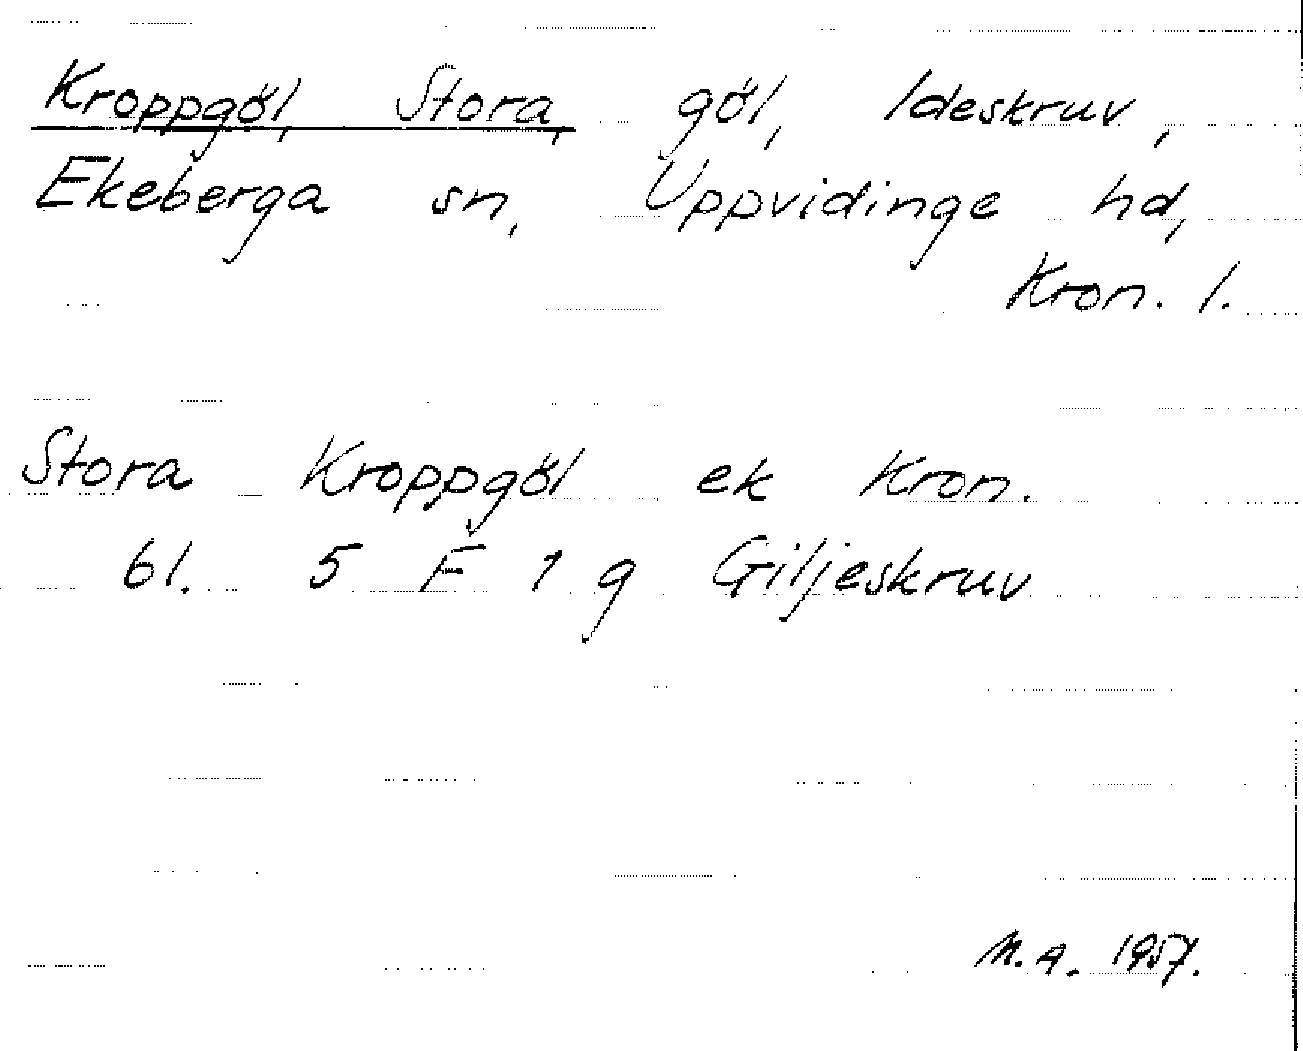 Kroppgöl, Stora, göl, Ideskruv,
Ekeberga sn, Uppvidinge hd,
Kron. l.
Stora Kroppgöl ek Kron.
61. 5 F 1 g Giljeskruv
M.A. 1957.